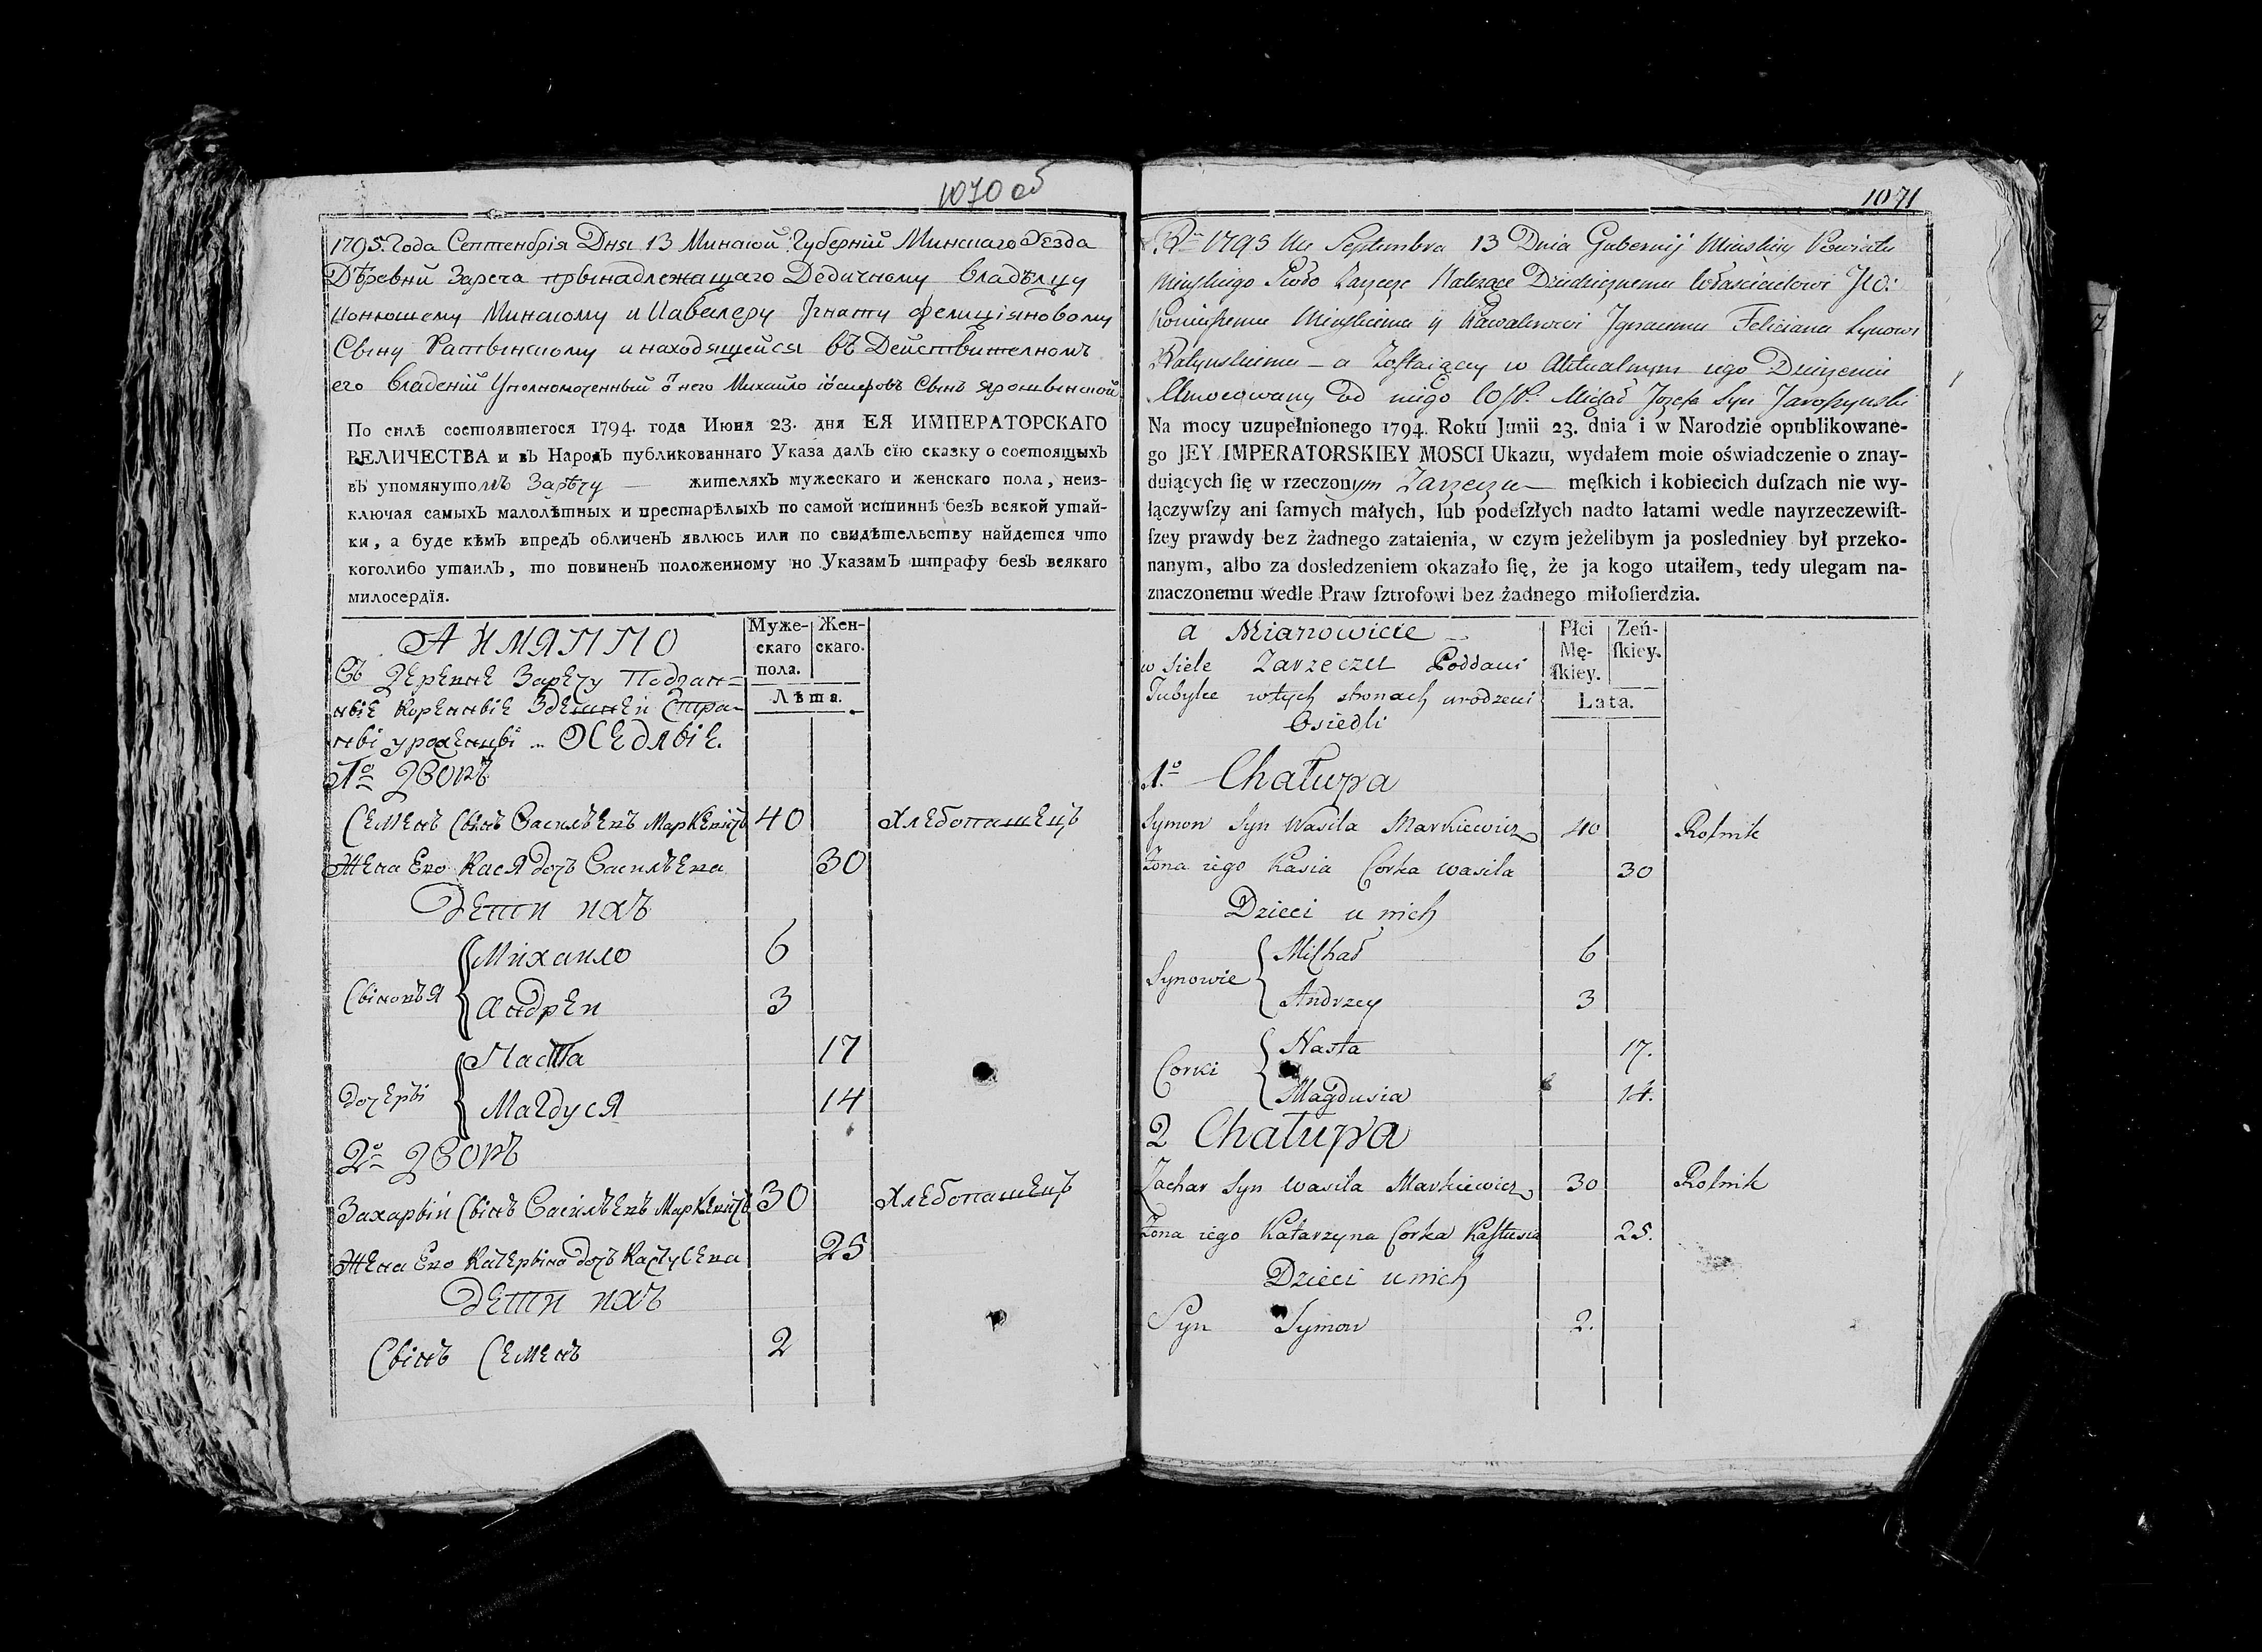 1070 об
1795. Года Септенбрія Дня 13 Минской Губерніи Минскаго Уезда
Дѣревни Зареча прынадлежащаго Дедичному Владѣлцу
Конюшему Минскому и Кавалеру Игнату Фелиціяновому
Сыну Ратынскому и находящейся въ Действителномъ
его владеніи Уполномоченный о него Михайло іосифовъ Сынъ Ярошынской
По силѣ состоявшегося 1794. года Июня 23. дня ЕЯ ИМПЕРАТОРСКАГО
ВЕЛИЧЕСТВА и въ Народъ публикованнаго Указа далъ сїю сказку о состоящыхъ
въ упомянутомъ Зарѣчу — жителяхъ мужескаго и женскаго пола, неиз-
ключая самыхъ малолѣтныхъ и престарѣлыхъ по самой истиннѣ безъ всякой утай-
ки, а буде кѣмъ впредь обличенъ явлюсь или по свидѣтельству найдется что
коголибо утаилъ, то повиненъ положенному по Указамъ штрафу безъ всякаго
милосердїя.
А ИМЯННО
Муже-
скаго
пола.
Жен-
скаго.
Лѣта.
Въ Деревне Заречу Поддан-
ныe Коренныe Здешней Стра-
ны уроженцы .. Оседлыe.
1о Дворъ
Семенъ Сынъ Васильевъ Маркевичъ 40 Хлебопашецъ
Жена Его Кася дочъ Васильева 30
Дети ихъ
Сыновья
Михайло 6
Андрей 3
дочеры
Наста 17
Магдуся 14
2о Дворъ
Захарый Сынъ Васильевъ Маркевичъ 30 Хлебопашецъ
Жена Его Катерына дочъ Кастусева 25
Дети ихъ
Сынъ Семенъ 2
1071
Rū 1795 Msc Septembra 13 Dnia Gubernij Minskiey Powiatu
Minskiego Sioło Zarzecze Należące Dziedzicznemu Własicielowi JW:
Koniuszemu Minskiemu y Kawalerowi Ignacemu Feliciana Synowi
Ratynskiemu — a Zostaiący w Aktualnym iego Dzierzeniu
Umocowany od niego WJP. Michał Jozefa Syn Jaroszynski
Na mocy uzupełnionego 1794. Roku Junii 23. dnia i w Narodzie opublikowane-
go JEY IMPERATORSKIEY MOSCI Ukazu, wydałem moie oświadczenie o znay-
duiących ſię w rzeczonym Zarzeczu — męſkich i kobiecich duſzach nie wy-
łączywſzy ani ſamych małych, lub podeſzłych nadto łatami wedle nayrzeczewiſt-
ſzey prawdy bez żadnego zataienia, w czym jeżelibym ja posledniey był przeko-
nanym, albo za dosledzeniem okazało ſię, że ja kogo utaiłem, tedy ulegam na-
znaczonemu wedle Praw ſztrofowi bez żadnego miłoſierdzia.
a Mianowicie
Płci
Mę-
ſkiey.
Zeń-
ſkiey.
Lata.
w Siele Zarzeczu Poddani
Tubylce w tych stronach urodzeni
Osiedli
1.o Chałupa
Symon Syn Wasila Markiewicz 40 Rolnik
Zona iego Kasia Corka Wasila 30
Dzieci u nich
Synowie
Michał 6
Andrzey 3
Corki
Nasta 17.
Magdusia 14.
2 Chałupa
Zachar Syn Wasila Markiewicz 30 Rolnik
Zona iego Katarzyna Corka Kastusia 25.
Dzieci u nich
Syn Symon 2.